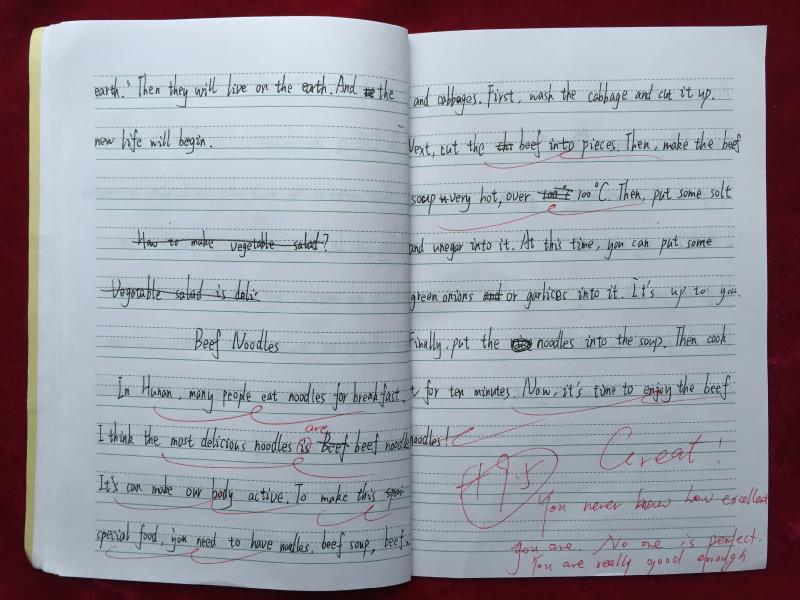 earth." Then they will live on the earth. And the
new life will begin.
How to make vegetable salad?
Vegetable salad is deli
Beef Noodles
In Hunan, many people eat noodles for breakfast.
are
I think the most delicious noodles is Beef beef noodle
It's can make our body active. To make this
special food, you need to have noodles, beef soup, beef
and cabbages. First, wash the cabbage and cut it up.
Next, cut the beef into pieces. Then, make the beef
soup very hot, over 100°C. Then, put some solt
and vnegar into it. At this time, you can put some
green onions and or garlices into it. It's up to you.
Finally, put the noodles into the soup. Then cook
t for ten minutes. Now, it's time to enjoy the beef
noodles!
Great!
9.5
You never know how excellent
you are. No one is perfect.
You are really good enough